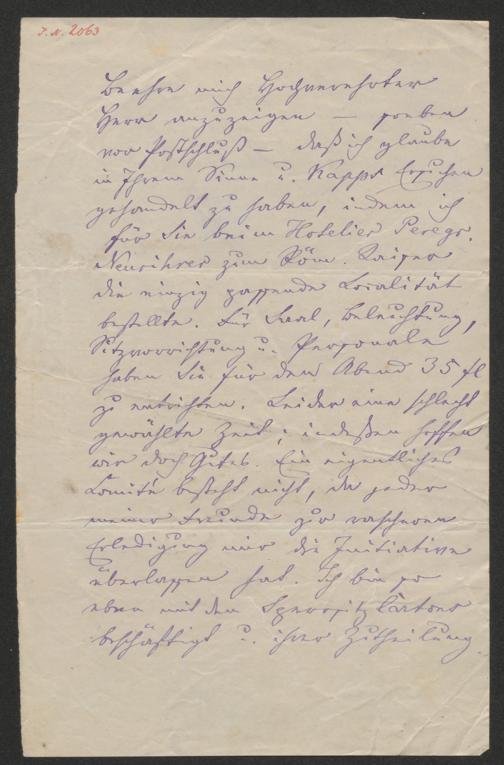 J. N. 2063
Beehre mich Hochverehrter
Herr anzuzeigen — soeben
vor Postschluß — daß ich glaube
in Ihrem Sinne u. Kapps Ersuchen
gehandelt zu haben, indem ich
für Sie beim Hotelier Peregr.
zum Röm. Kaiser
die einzig passende Localität
bestellte. Für Saal, Beleuchtung,
Sitzvorrichtung u. Personale
haben Sie für den Abend 35 fl
zu entrichten. Leider eine schlecht
gewählte Zeit; indeßen hoffen
wir doch Gutes. Ein eigentliches
Comité besteht nicht, da jeder
meiner Freunde zur rascheren
Erledigung mir die Initiative
überlassen hat. Ich bin so
eben mit den Sperrsitz Cartons
beschäftigt u. ihrer Zutheilung